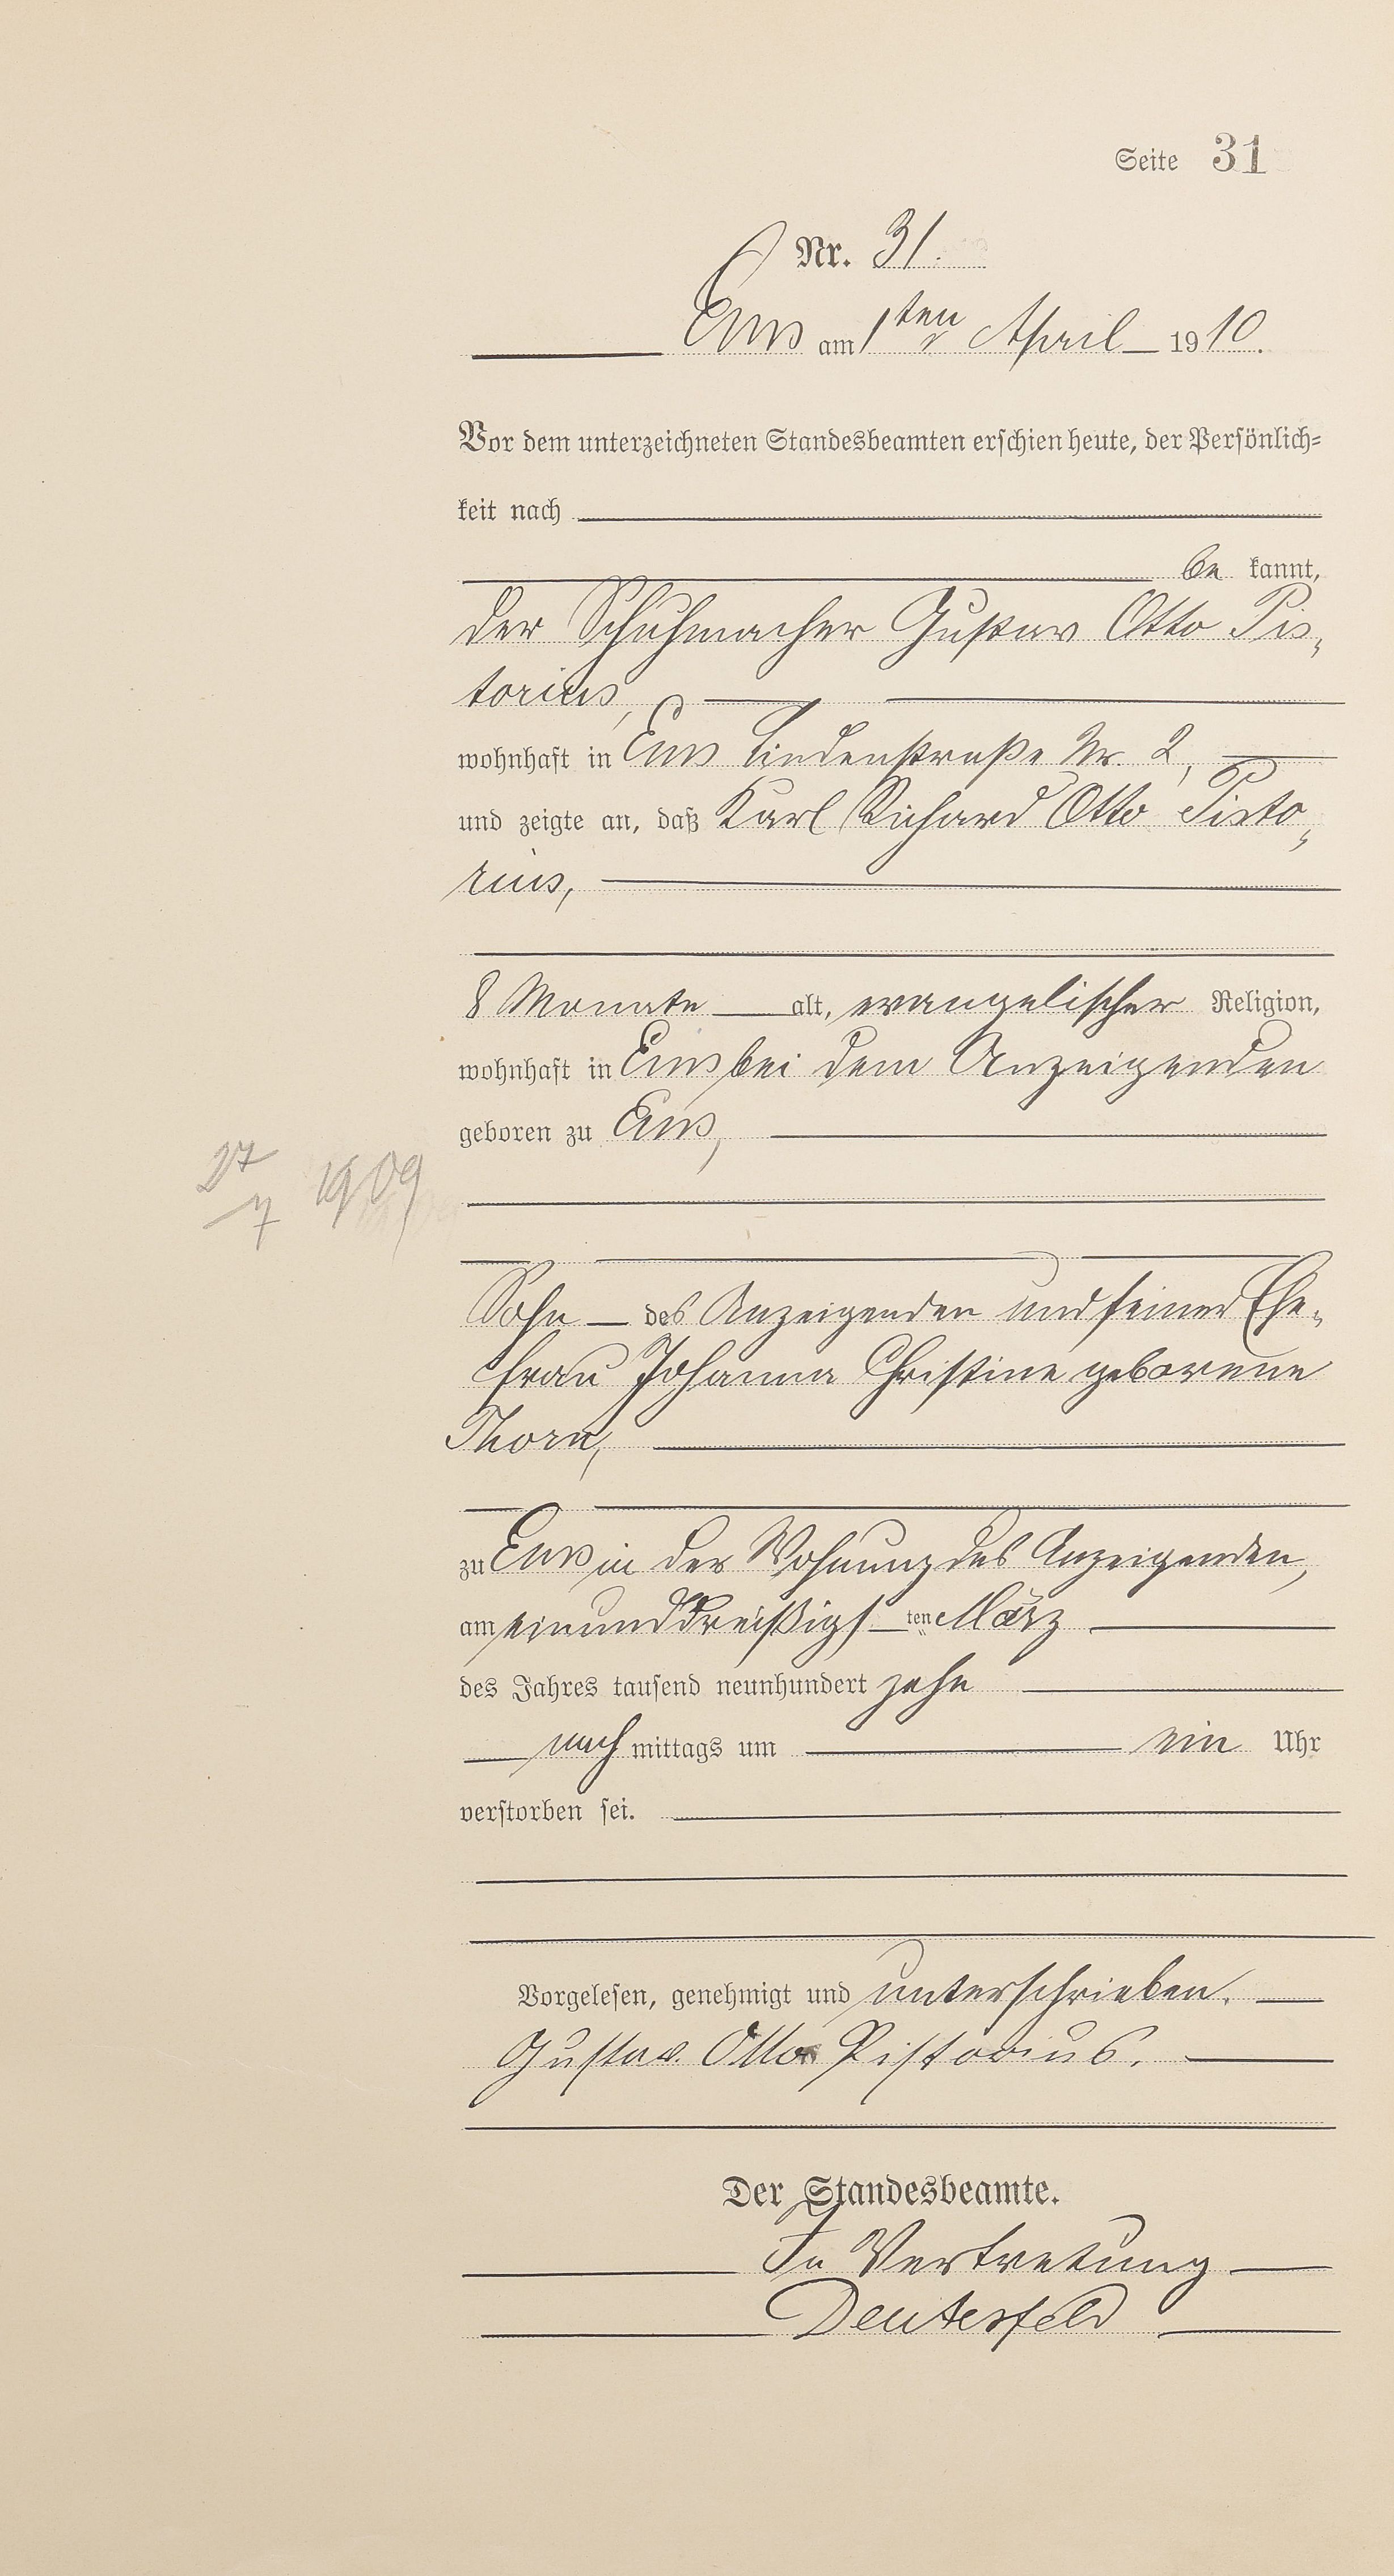 Seite 31
Nr. 31.
Ems am 1ten April 1910.
Vor dem unterzeichneten Standesbeamten erschien heute, der Persönlich-
keit nach
be kannt,
der Schuhmacher Gustav Otto Pis-
torius,
wohnhaft in Ems Lindenstraße Nr. 2,
und zeigte an, daß Karl Richard Otto Pisto-
rius,
8 Monate alt, evangelischer Religion,
wohnhaft in Ems bei dem Anzeigenden
geboren zu Ems,
27
7 1909
Sohn des Anzeigenden und seiner Ehe-
frau Johanna Christine geborene
Thorn,
zu Ems in der Wohnung des Anzeigenden,
am einunddreißigsten März
des Jahres tausend neunhundert zehn
nachmittags um ein Uhr
verstorben sei.
Vorgelesen, genehmigt und unterschrieben.
Gustav Otto Pistorius.
Der Standesbeamte.
In Vertretung
Deutesfeld